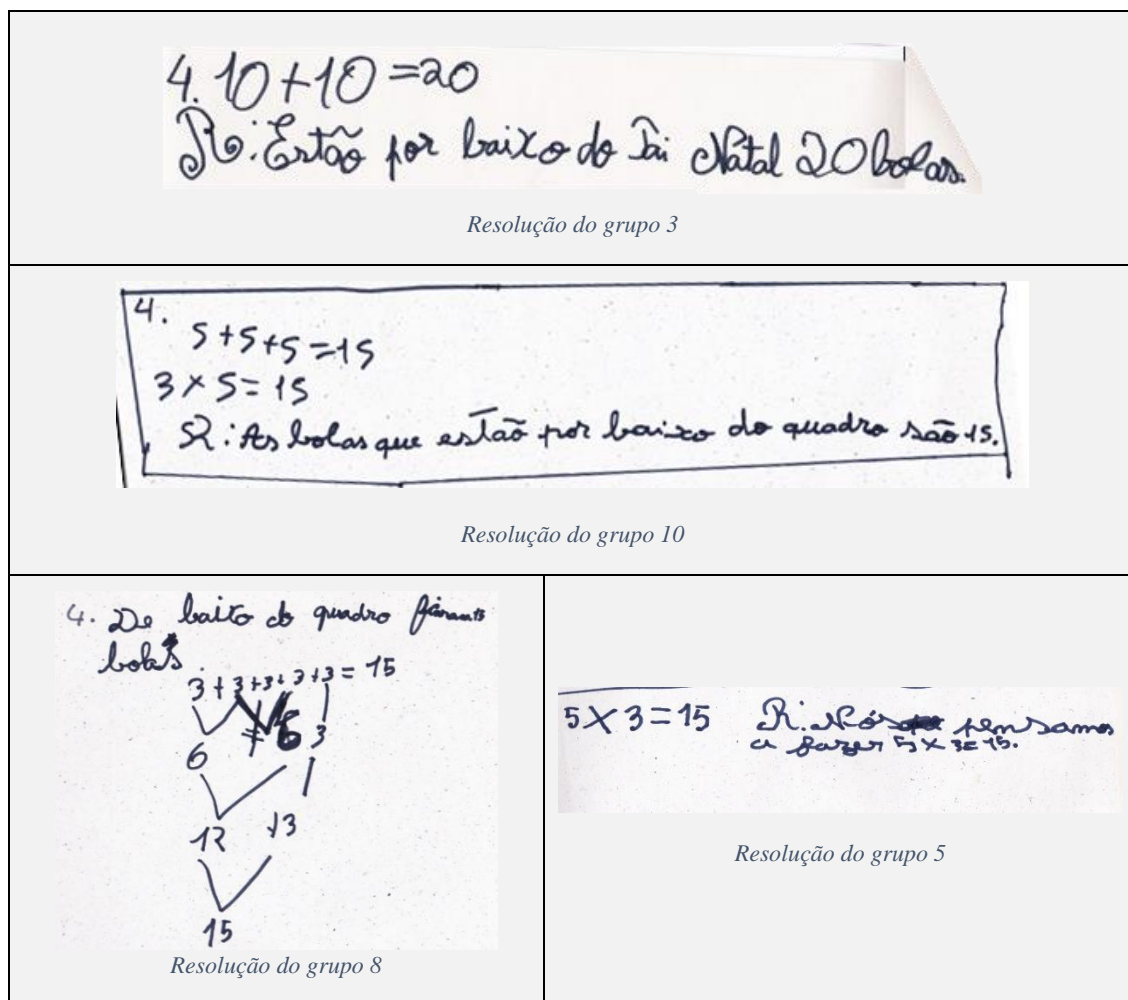 4. 10+10=20
R: Estão por baixo do Pai Natal 20 bolas.
Resolução do grupo 3
4.
5+5+5=15
3×5=15
R: As bolas que estão por baixo do quadro são 15.
Resolução do grupo 10
4. De baixo do quadro ficaram 15
bolas
3+3+3+3+3=15
6 + 6 3
12 +3
15
Resolução do grupo 8
5×3=15 R: Nós pensamos
a fazer 5×3=15.
Resolução do grupo 5